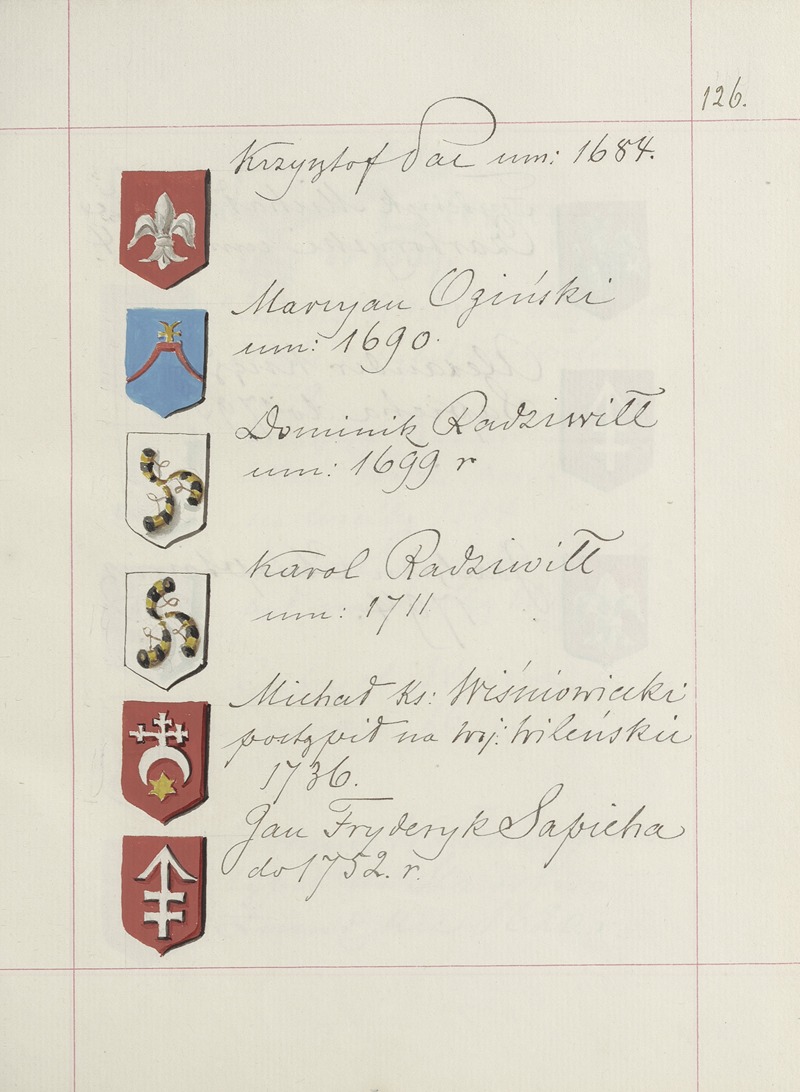 126.
Krzysztof Pac um: 1684.
Marcyan Ogiński
um: 1690.
Dominik Radziwiłł
um: 1699 r
Karol Radziwiłł
um: 1711
Michał Ks: Wiśniowiecki
postąpił na Woj: Wileńskie
1736.
Jan Fryderyk Sapieha
do 1752. r.